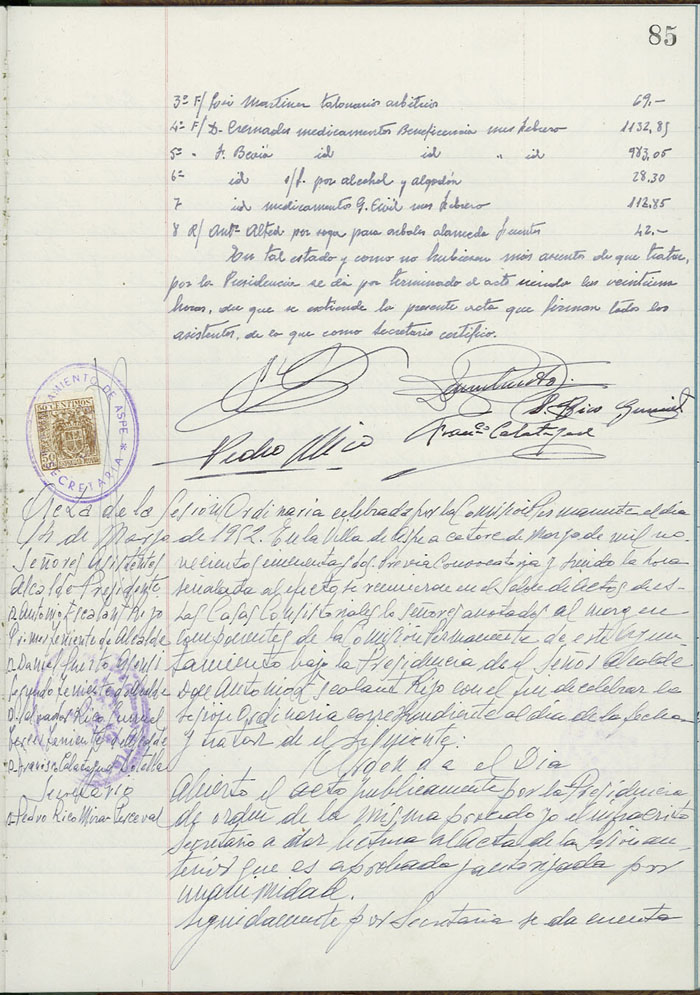 85
3º F/ José Martinez talonarios arbitrios 69.-
4º F/ D. Cremades medicamentos Beneficencia mes febrero 1132,85
5º " F. Beviá id id " id 983,05
6º id s/f. por alcohol y algodón 28.30
7 id medicamentos G. Civil mes febrero 112.85
8 R/ Antº Alted por soga para arboles alameda fuentes 42.-
En tal estado y como no hubieran más asuntos de que tratar,
por la Presidencia se dió por terminado el acto siendo las veintiuna
horas, de que se extiende la presente acta que firman todos los
asistentes, de lo que como Secretario certifico.
D. Rico
Pedro Rico
Franco Calatayud
AYUNTAMIENTO DE ASPE * SECRETARIA
50 CENTIMOS
Acta de la Sesion Ordinaria celebrada por la Comision Permanente el dia
14 de Marzo de 1952. En la Villa de Aspe a catorce de marzo de mil no-
Señores Asistentes
vecientos cincuenta y dos. Previa Convocatoria y siendo la hora
Alcalde Presidente
señalada al efecto se reunieron en el Salon de actos de es-
D Antonio Escolano Rizo
tas Casas Consistoriales lo señores anotados al margen
Primer teniente de Alcalde
componentes de la Comision Permanente de este Ayun-
D. Daniel Puerto Alonso
tamiento bajo la Presidencia de el Señor Alcalde
Segundo teniente de alcalde
Don Antonio Escolano Rizo con el fin de celebrar la
D Salvador Rico
sesion Ordinaria correspondiente al dia de la fecha
Tercer teniente de alcalde
y tratar de el siguiente:
D Francisco Calatayud
Orden d a el Dia
Secretario
Abierto el acto publicamente por la Presidencia
D Pedro Rico Mira-Perceval
de orden de la misma procedo yo el infrascrito
Secretario a dar lectura al Acta de la Sesion an-
terior que es aprobada y autorizada por
unanimidad.
Seguidamente por Secretaria se da cuenta